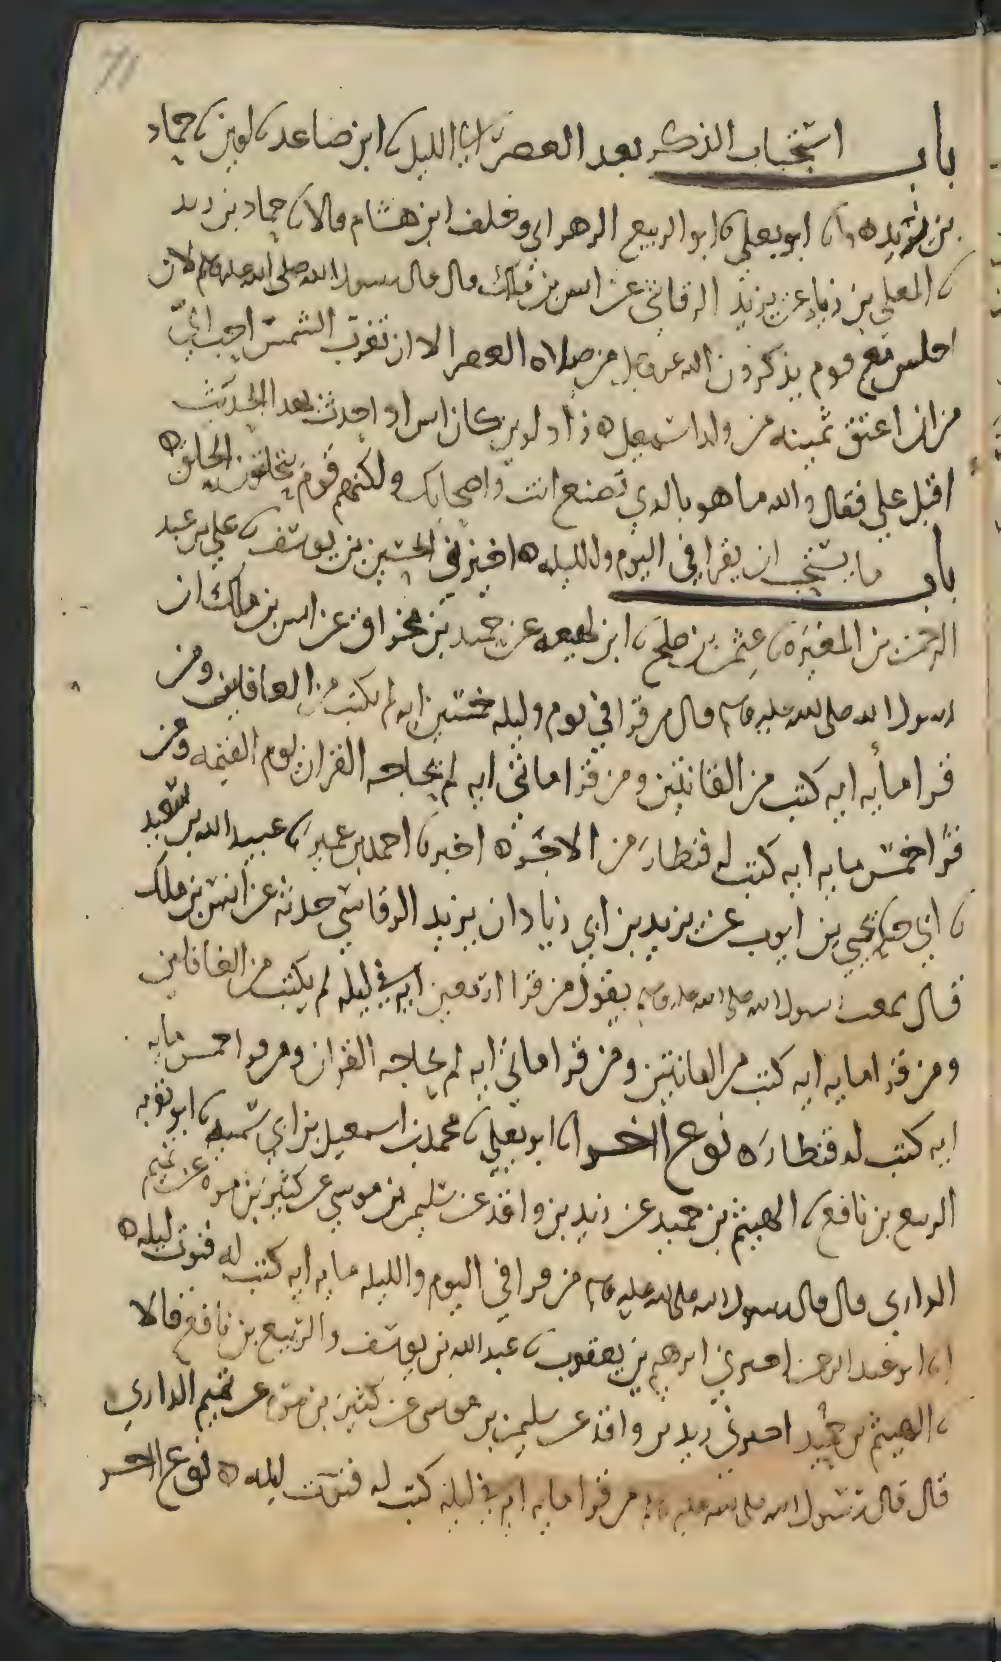 71
باب استحباب الذكر بعد العصر الى الليل ابن صاعد لوين حماد
بن زيد وانا ابو يعلى ابو الربيع الزهراني وخلف ابن هشام قالا حماد بن زيد
المعلى بن زياد عن يزيد الرقاشي عن انس بن ملك قال قال رسول الله صلى الله عليه وسلم لان
اجلس مع قوم يذكرون الله عز وجل من صلاة العصر الا ان تغرب الشمس احب الي
من ان اعتق ثمينه من ولد اسمعيل زاد لوين كان انس اذا حدث بهذا الحديث
اقبل علي فقال والله ما هو بالذي تصنع انت واصحابك ولكنهم قوم يتحلقون الحلق
باب ما يستحب ان يقرا في اليوم والليله اخبرني الحسين بن يوسف علي بن عبد
الرحمن بن المغيرة عثمن بن صلح ابن لهيعه عن حميد بن مخراق عن انس بن ملك ان
رسول الله صلى الله عليه وسلم قال من قرا في يوم وليله خمسين ايه لم يكتب من الغافلين ومن
قرا مأيه ايه كتب من القانتين ومن قرا ماتي ايه لم يحاجه القران يوم القيمه ومن
قرا خمس مايه ايه كتب له قنطار من الاجر اخبرنا احمد بن عمير عبيد الله بن سعيد
ابي يحيى بن ايوب عن يزيد بن ابي زياد ان يزيد الرقاشي حدثه عن انس بن ملك
قال سمعت رسول الله صلى الله عليه وسلم يقول من قرا اربعين ايه في ليله لم يكتب من الغافلين
ومن قرا مايه ايه كتب من القانتين ومن قرا ماتي ايه لم يحاجه القران ومن قرا خمس مايه
ايه كتب له قنطار نوع اخر انا ابو يعلى محمد بن اسمعيل بن ابي سمينه ابو توبه
الربيع بن نافع الهيثم بن حميد عن زيد بن واقد عن سليمن بن موسى عن كثير بن مره عن تميم
الداري قال قال رسول الله صلى الله عليه وسلم من قرا في اليوم والليله مايه ايه كتب له قنوت ليله
انا ابو عبد الرحمن اخبرني ابرهيم بن يعقوب عبد الله بن يوسف والربيع بن نافع قالا
الهيثم بن حميد اخبرني زيد بن واقد عن سليمن بن موسى عن كثير بن مرة عن تميم الداري
قال قال رسول الله صلى الله عليه وسلم من قرا مايه ايه في ليله كتب له قنوت ليله نوع اخر